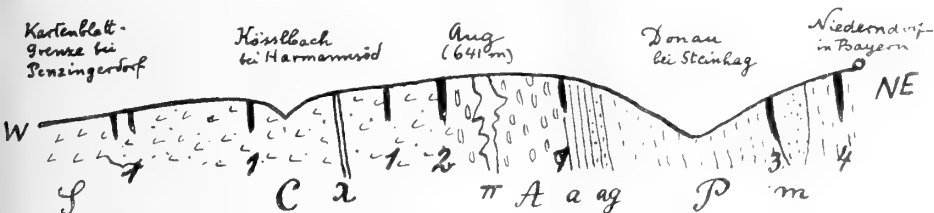 Kartenblatt-
grenze bei
Penzingerdorf
Kösslbach
bei Harmannsöd
Aug
(641 m)
Donau
bei Steinhag
Niederndorf
in Bayern
W
NE
1 1 1 2 9 3 4
S C λ π A a ag P m